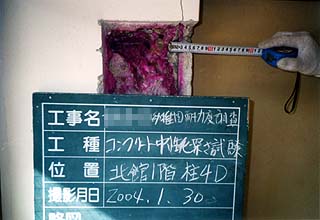 工事名 幼稚園耐力度調査
工種 コンクリート中性化深さ試験
位置 北館1階 柱4D
撮影月日 2004.1.30
略図